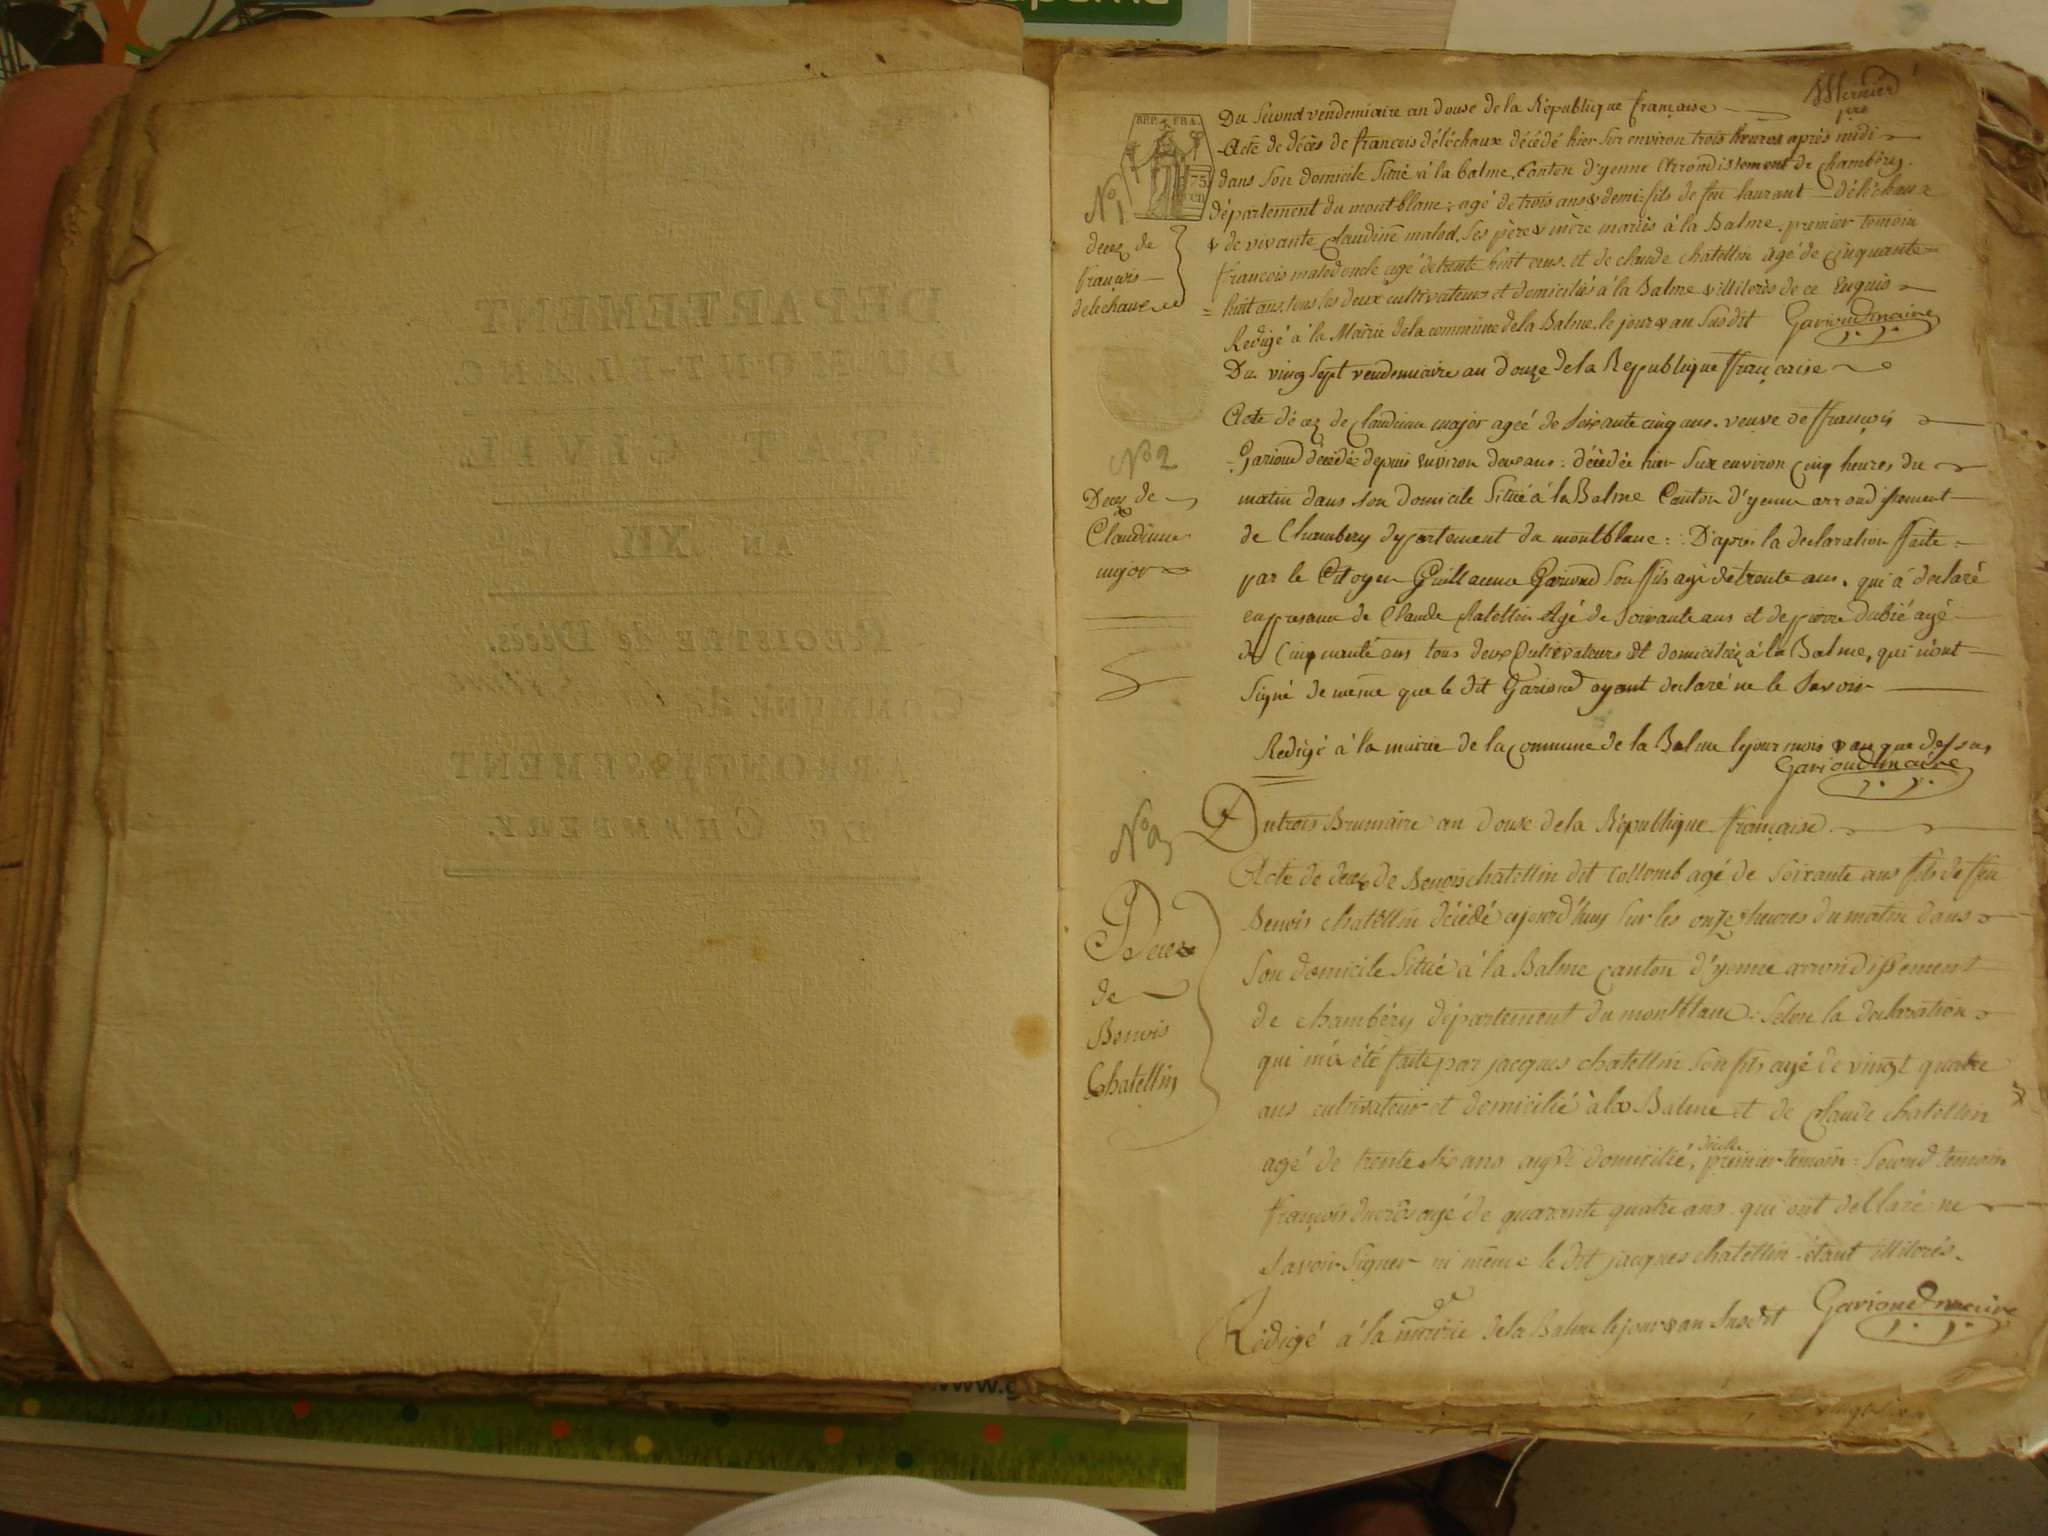 DÉPARTEMENT
DU MONT-BLANC.
ÉTAT CIVIL.
AN XII.
REGISTRE de Décès.
COMMUNE de la Balme
ARRONDISSEMENT
DE CHAMBERY.
REP. FRA.
75
Du second vendemiaire an douse de la République française
Acte de décès de francois déléchaux décédé hier sur environ trois heures après midi
dans son domicile situé à la balme, canton d'yenne arrondissement de chambéry.
département du montblanc; agé de trois ans & demi: fils de feu laurant déléchaux
& de vivante claudine malod, ses père & mère mariés à la Balme. premier temoin
françois malod oncle agé de trente huit ans. et de claude chatellin agé de cinquante
= huit ans, tous les deux cultivateurs et domiciliés à la Balme & illiterés de ce Enquis
Redigé à la Mairie de la commune de la Balme, le jour & an susdit Garioud maire
No 1
decez de
françois
delechaux
Du vingt sept vendemiaire an douze de la Republique française
Acte décez de Claudinne major ageé de soixante cinq ans. veuve de françois
Garioud décédé depuis environ deux ans: décédée hier sur environ cinq heures du
matin dans son domicile situé à la Balme Canton d'yenne arrondissement
de Chambery departement du montblanc: D'après la declaration faite
par le Citoyen Guillaume Garioud son fils agé de trente ans. qui à declaré
en presance de Claude Chatellin Agé de soixante ans et de pierre dubié agé
de Cinquante ans tous deux Cultivateurs et domiciliéz à la Balme, qui n'ont
signé de même que le dit Garioud ayant declaré ne le savoir
Redigé à la mairie de la Commune de la Balme le jour mois & an que dessus
Garioud maire
No 2
Decez de
Claudinne
major
Du trois Brumaire an douse de la République française
Acte de decez de Benois chatellin dit Collomb agé de soixante ans fils de feu
Benois chatellin décédé ajourd'huy sur les onze heures du matin dans
son domicile situé à la Balme canton d'yenne arrondissement
de chambéry département du montblanc: selon la declaration
qui m'a été faite par jacques chatellin son fils agé de vingt quatre
ans cultivateur et domicilié à la Balme et de claude chatellin
agé de trente six ans aussi domicilié, premier temoin: second temoin
françois ducrêt agé de quarante quatre ans qui ont dellaré ne
savoir signer ni même le dit jacques chatellin étant illiterés.
Rédigé à la mairie de la Balme le jour & an susdit Garioud maire
No 3
Decez
de
Benois
Chatellin